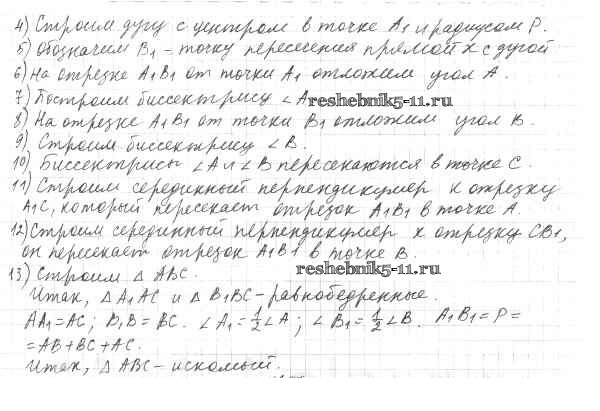 4) Строим дугу с центром в точке A₁ и радиусом P.
5) Обозначим B₁ - точку пересечения прямой x с дугой
6) На отрезке A₁B₁ от точки A₁ отложим угол A.
7) Построим биссектрису ∠A
reshebnik5-11.ru
8) На отрезке A₁B₁ от точки B₁ отложим угол B.
9) Строим биссектрису ∠B.
10) Биссектрисы ∠A и ∠B пересекаются в точке C.
11) Строим серединный перпендикуляр к отрезку
A₁C, который пересекает отрезок A₁B₁ в точке A.
12) Строим серединный перпендикуляр к отрезку CB₁,
он пересекает отрезок A₁B₁ в точке B.
reshebnik5-11.ru
13) Строим △ ABC.
Итак, △ A₁AC и △ B₁BC - равнобедренные.
AA₁=AC; B₁B=BC. ∠A₁=½∠A; ∠B₁=½∠B. A₁B₁=P=
=AB+BC+AC.
Итак, △ ABC - искомый.